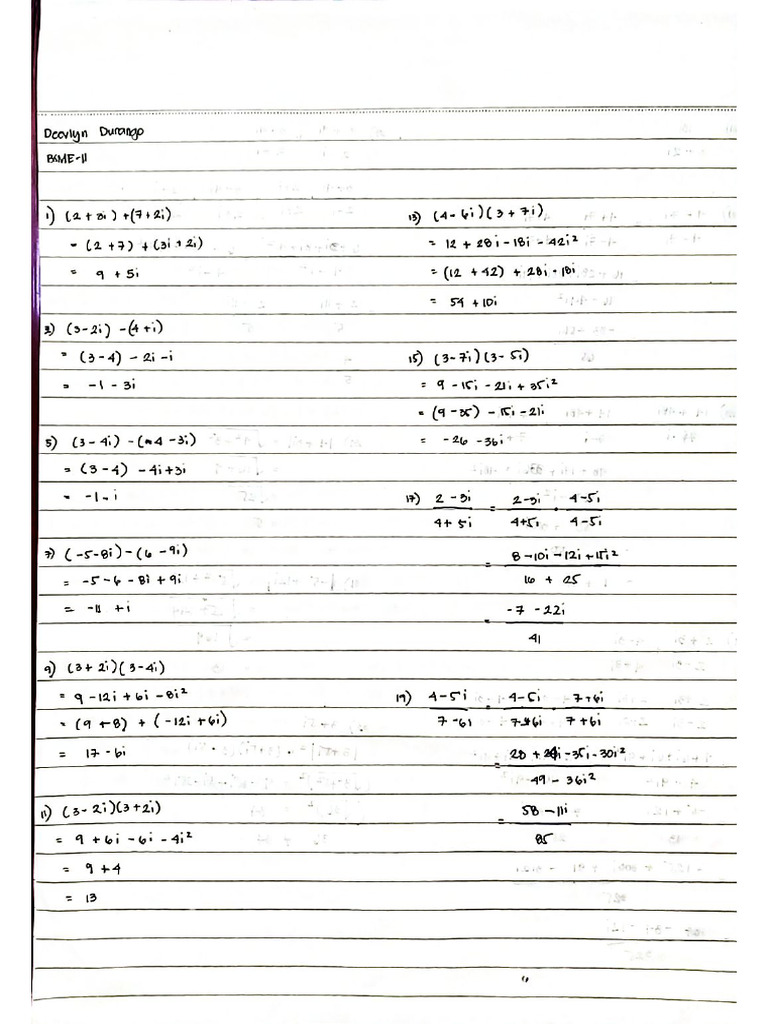 Deovlyn Durango
BSME-11
1) (2 + 3i) + (7 + 2i)
= (2 + 7) + (3i + 2i)
= 9 + 5i
3) (3 - 2i) - (4 + i)
= (3 - 4) - 2i - i
= -1 - 3i
5) (3 - 4i) - (-4 - 3i)
= (3 - 4) - 4i + 3i
= -1 - i
7) (-5 - 8i) - (6 - 9i)
= -5 - 6 - 8i + 9i
= -11 + i
9) (3 + 2i)(3 - 4i)
= 9 - 12i + 6i - 8i²
= (9 + 8) + (-12i + 6i)
= 17 - 6i
11) (3 - 2i)(3 + 2i)
= 9 + 6i - 6i - 4i²
= 9 + 4
= 13
13) (4 - 6i)(3 + 7i)
= 12 + 28i - 18i - 42i²
= (12 + 42) + 28i - 18i
= 54 + 10i
15) (3 - 7i)(3 - 5i)
= 9 - 15i - 21i + 35i²
= (9 - 35) - 15i - 21i
= -26 - 36i
17) 2 - 3i = 2 - 3i · 4 - 5i
4 + 5i 4 + 5i 4 - 5i
= 8 - 10i - 12i + 15i²
16 + 25
= -7 - 22i
41
19) 4 - 5i = 4 - 5i · 7 + 6i
7 - 6i 7 - 6i 7 + 6i
= 28 + 24i - 35i - 30i²
49 - 36i²
= 58 - 11i
85